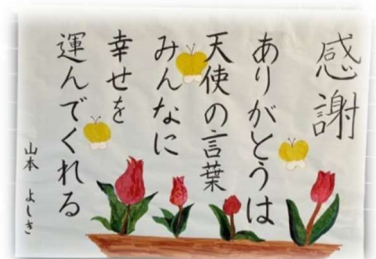 感謝
ありがとうは
天使の言葉
みんなに
幸せを
運んでくれる
山本 よしき